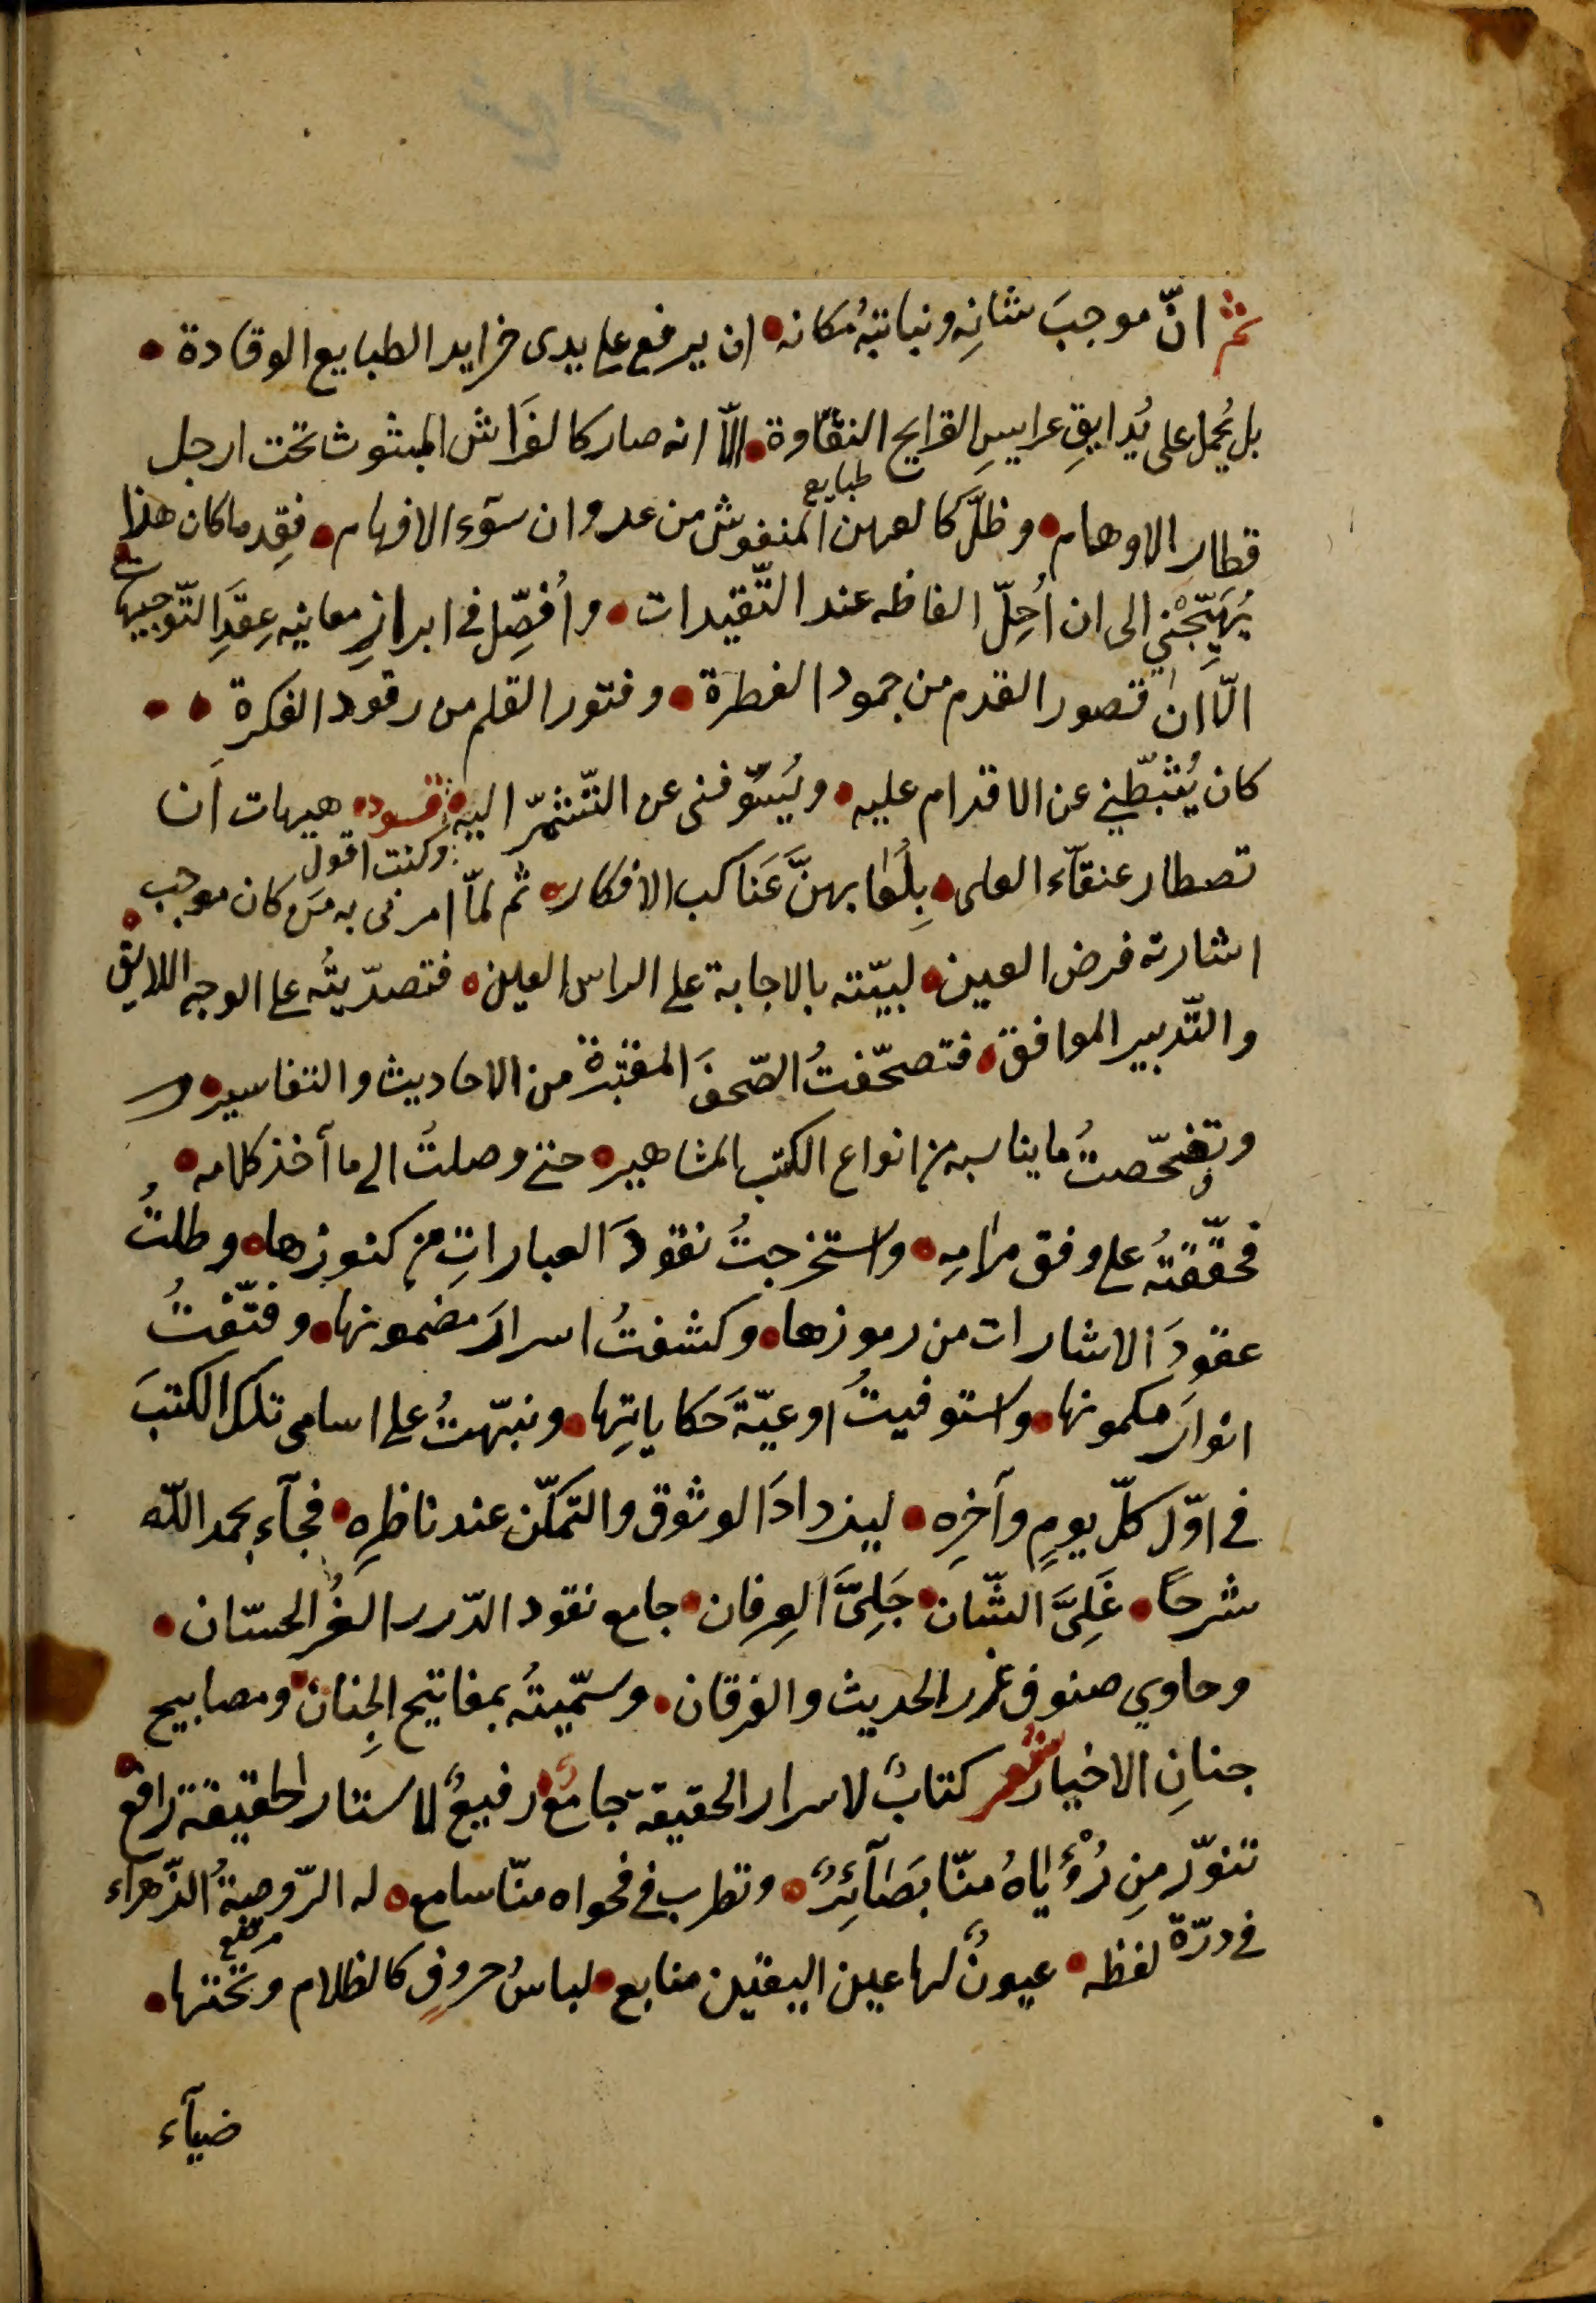 ثم انّ موجبَ شانِه ونباتية مكانه ان يرفع على يدى خرايد الطبايع الوقادة
بل يُحمل على يُدايقِ عرايسِ القرايح النقّاوة الّا انه صار كالفَراش المبثوث تحت ارجل
قطار الاوهام وظلّ كالعهن المنفوش من عدوان سوٓء الافهام فقِدما كان هذا
طبايع
يُهَيِّجُني الى ان اُحِلّ الفاظه عند التّقيدات واُفصِّل فى ابرازِ معانيه عِقدَ التّوجيهات
الّا ان قصور القدم من جمود الفطرة وفتور القلم من رقود الفكرة
كان يُثبّطني عن الاقدام عليه ويُسوّفنى عن التّشمّر اليه هيهات اَن
وكنت اقول
تصطار عنقآء العلى بِلُعابهنَّ عَناكب الافكار ثم لمّا امرنى به مَن كان موجب
اشارته فرض العين لبيّته بالاجابة على الراس العين فتصدّيتُه على الوجه اللايق
والتّدبير الموافق فتصحّفتُ الصّحفَ المعتبرة من الاحاديث والتفاسير و
وتفحّصتُ ما يناسبه من انواع الكتب المشاهير حتى وصلتُ الى مآخذ كلامه
فحقّقتُه على وفق مرامِه واستخرجتُ نقودَ العباراتِ من كنوزها وطلبتُ
عقودَ الاشارات من رموزها وكشفتُ اسرارَ مضمونها وفتّقتُ
انوارَ مكمونها واستوفيتُ اوعيّةَ حَكاياتِها ونبّهتُ على اسامى تلك الكتبَ
فى اوّل كلّ يومٍ وآخرِه ليزدادَ الوثوق والتمكّن عند ناظرِه فجآء بحمد اللّه
شرحًا عَلِىَّ الشّان جَلِىَّ العِرفان جامع نقود الدّرر الغُر الحسّان
وحاوي صنوف غرر الحديث والفرقان وسمّيتُه بمفاتيح الجِنان ومصابيح
جنانِ الاخيار شعر كتابٌ لاسرار الحقيقة جامعٌ رفيعٌ لاستار الحقيقة رافع
تنوّر مِن رُؤياهُ منّا بَصَآئِرٌ وتطرب فى فحواه منّا سامع له الرّوضةُ الزّهراء
فى درّة لفظه عيونٌ لها عين اليقين منابع لباسُ حروفٍ كالظلام وتحتها
ضيآء